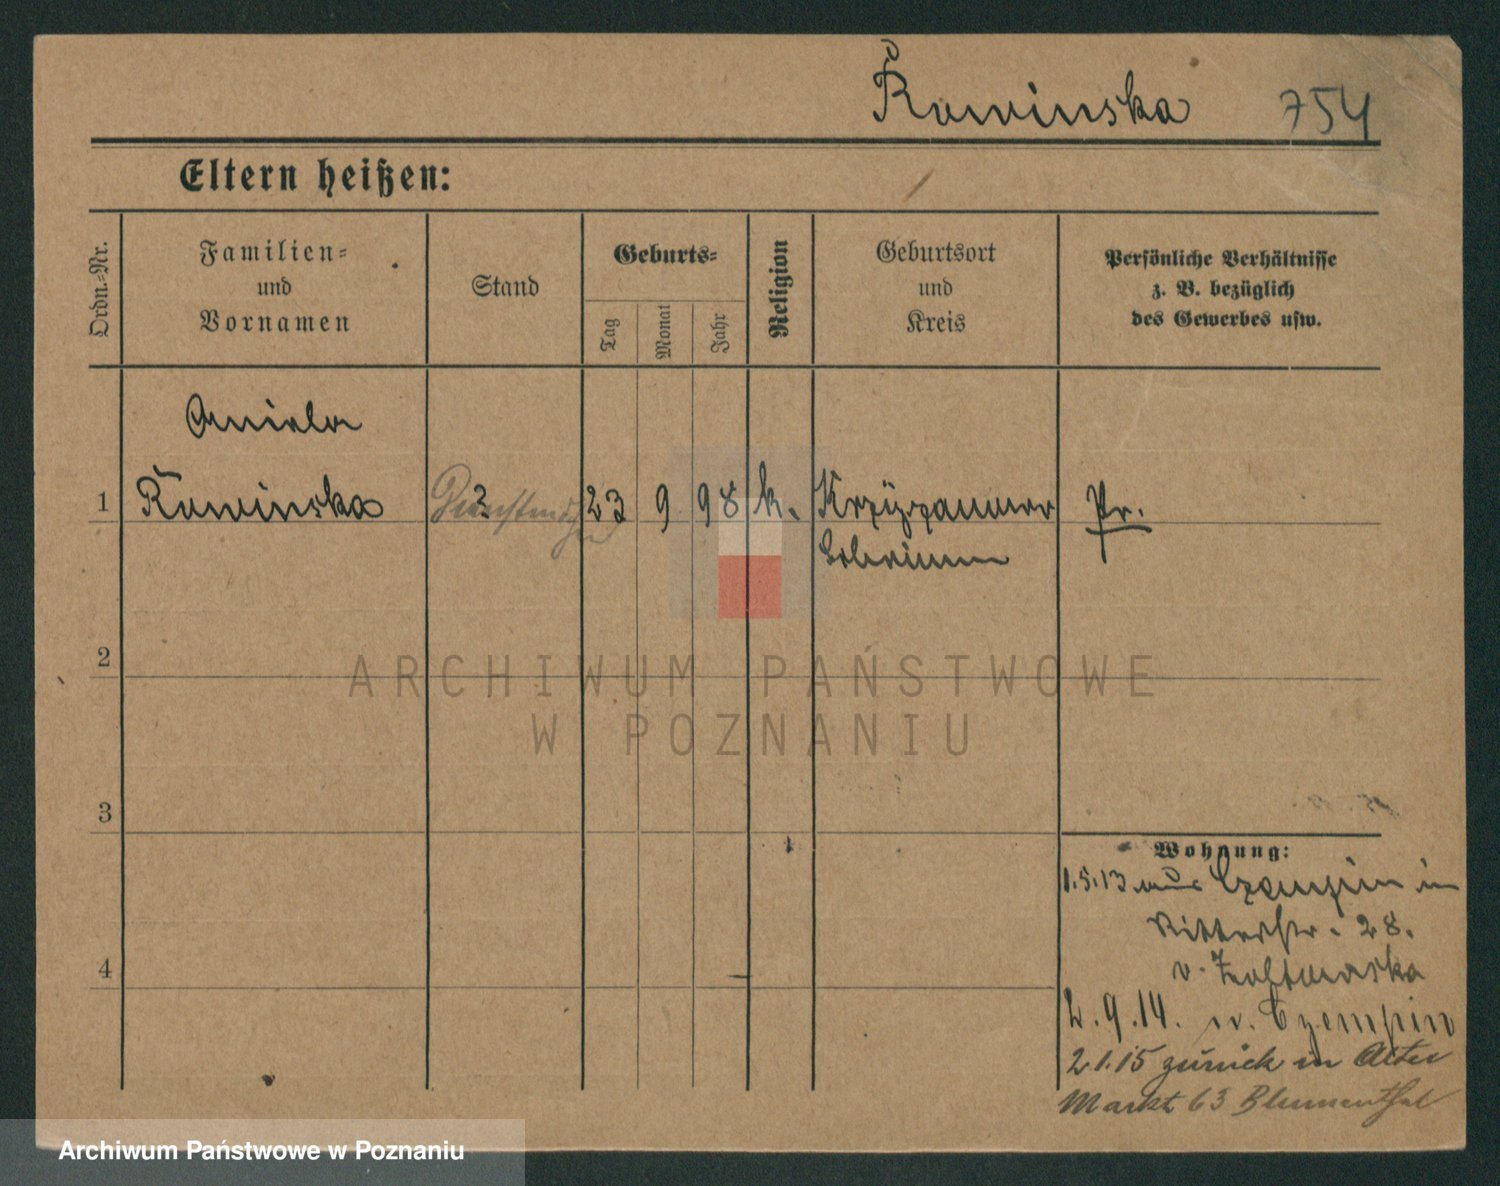 Ruminska 754
Eltern heißen:
Ordn.-Nr.
Familien-
und
Vornamen
Stand
Geburts-
Tag
Monat
Jahr
Religion
Geburtsort
und
Kreis
Persönliche Verhältnisse
z. B. bezüglich
des Gewerbes usw.
Aniela
1 Ruminska 23 9 98 k. Pr.
2
3
4
ARCHIWUM PAŃSTWOWE
W POZNANIU
Wohnung:
1.5.13 aus Czempin in
Ritterstr. 28.
2.9.14. n. Czempin
2.1.15 zurück in Alter
Markt 63 Blumenthal
Archiwum Państwowe w Poznaniu